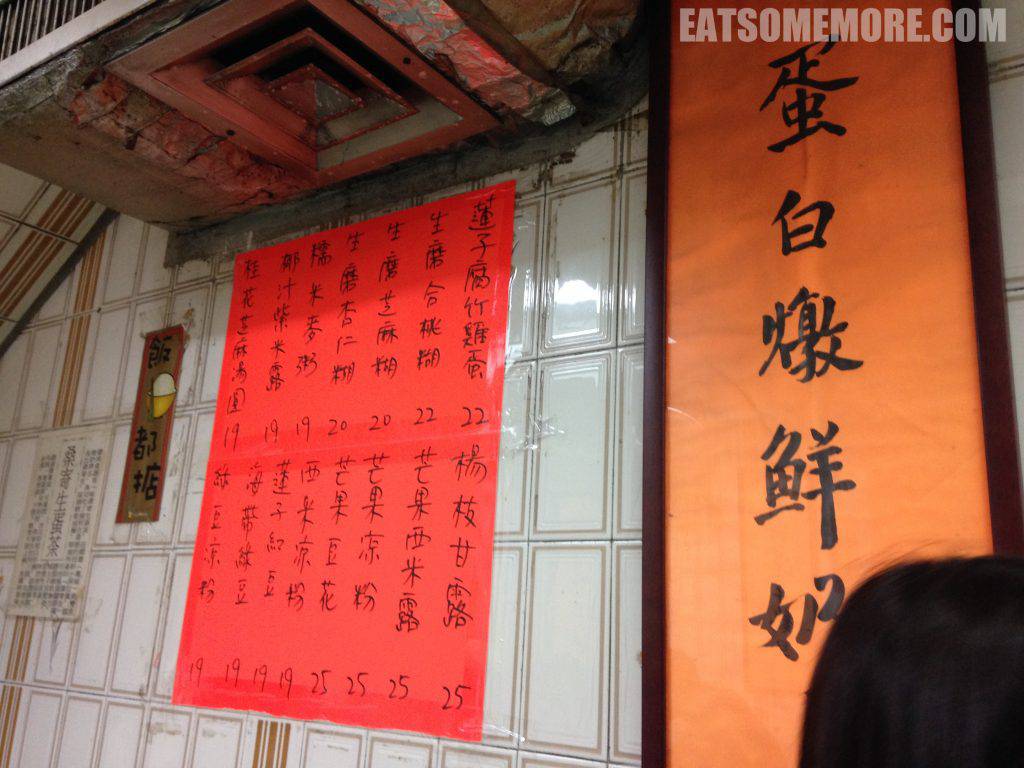 EATSOMEMORE.COM
蛋白燉鮮奶
蓮子腐竹雞蛋 22
生磨合桃糊 22
生磨芝麻糊 20
生磨杏仁糊 20
糯米麥粥 19
椰汁紫米露 19
桂花芝麻湯圓 19
楊枝甘露 25
芒果西米露 25
芒果凉粉 25
芒果豆花 25
西米凉粉 19
蓮子紅豆 19
海帶綠豆 19
綠豆凉粉 19
飯都掂
桑寄生蛋茶